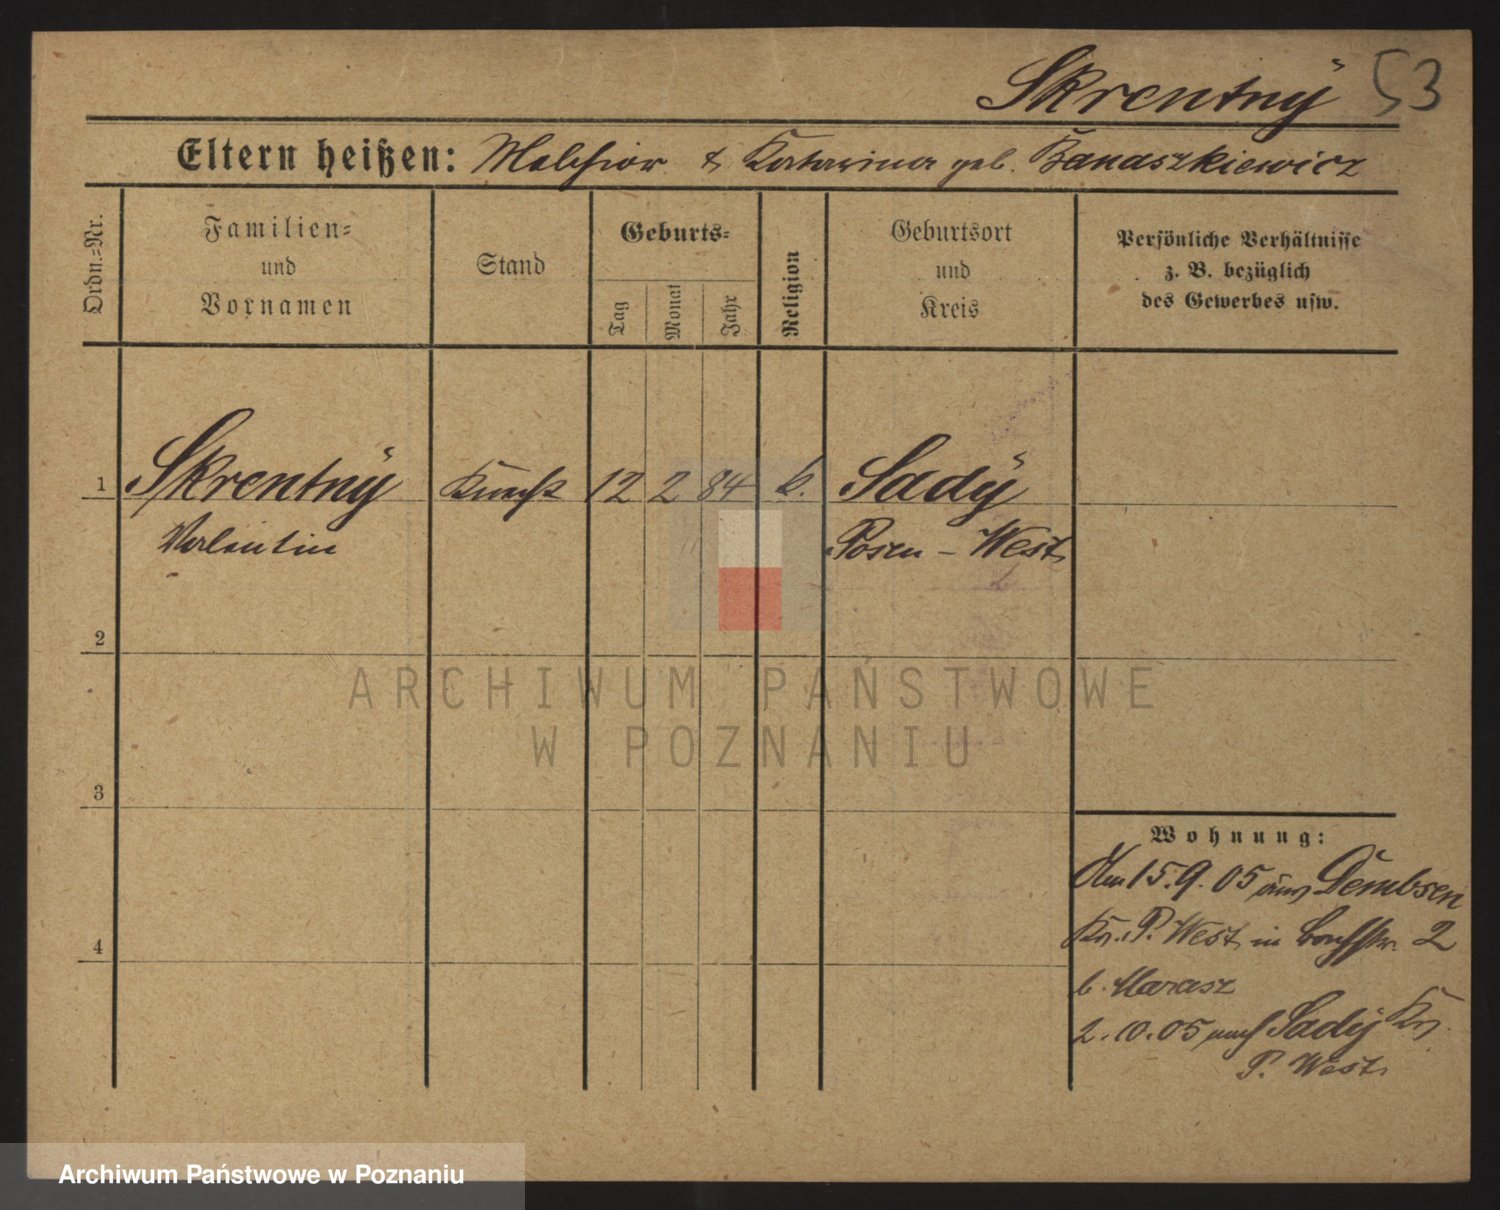 Skrentnÿ 53
Eltern heißen: Melchior & Katarina geb. Banaszkiewicz
Ordn.=Nr.
Familien=
und
Vornamen
Stand
Geburts=
Tag
Monat
Jahr
Religion
Geburtsort
und
Kreis
Persönliche Verhältnisse
z. B. bezüglich
des Gewerbes usw.
1 Skrentnÿ Knecht 12 2 84 k. Sadÿ
Valentin Posen - West
2
3
4
Wohnung:
Am 15.9.05 aus Dembsen
Kr. P. West in 2
b. Marasz
2.10.05 nach Sadÿ Kr.
P. West
ARCHIWUM PAŃSTWOWE
W POZNANIU
Archiwum Państwowe w Poznaniu